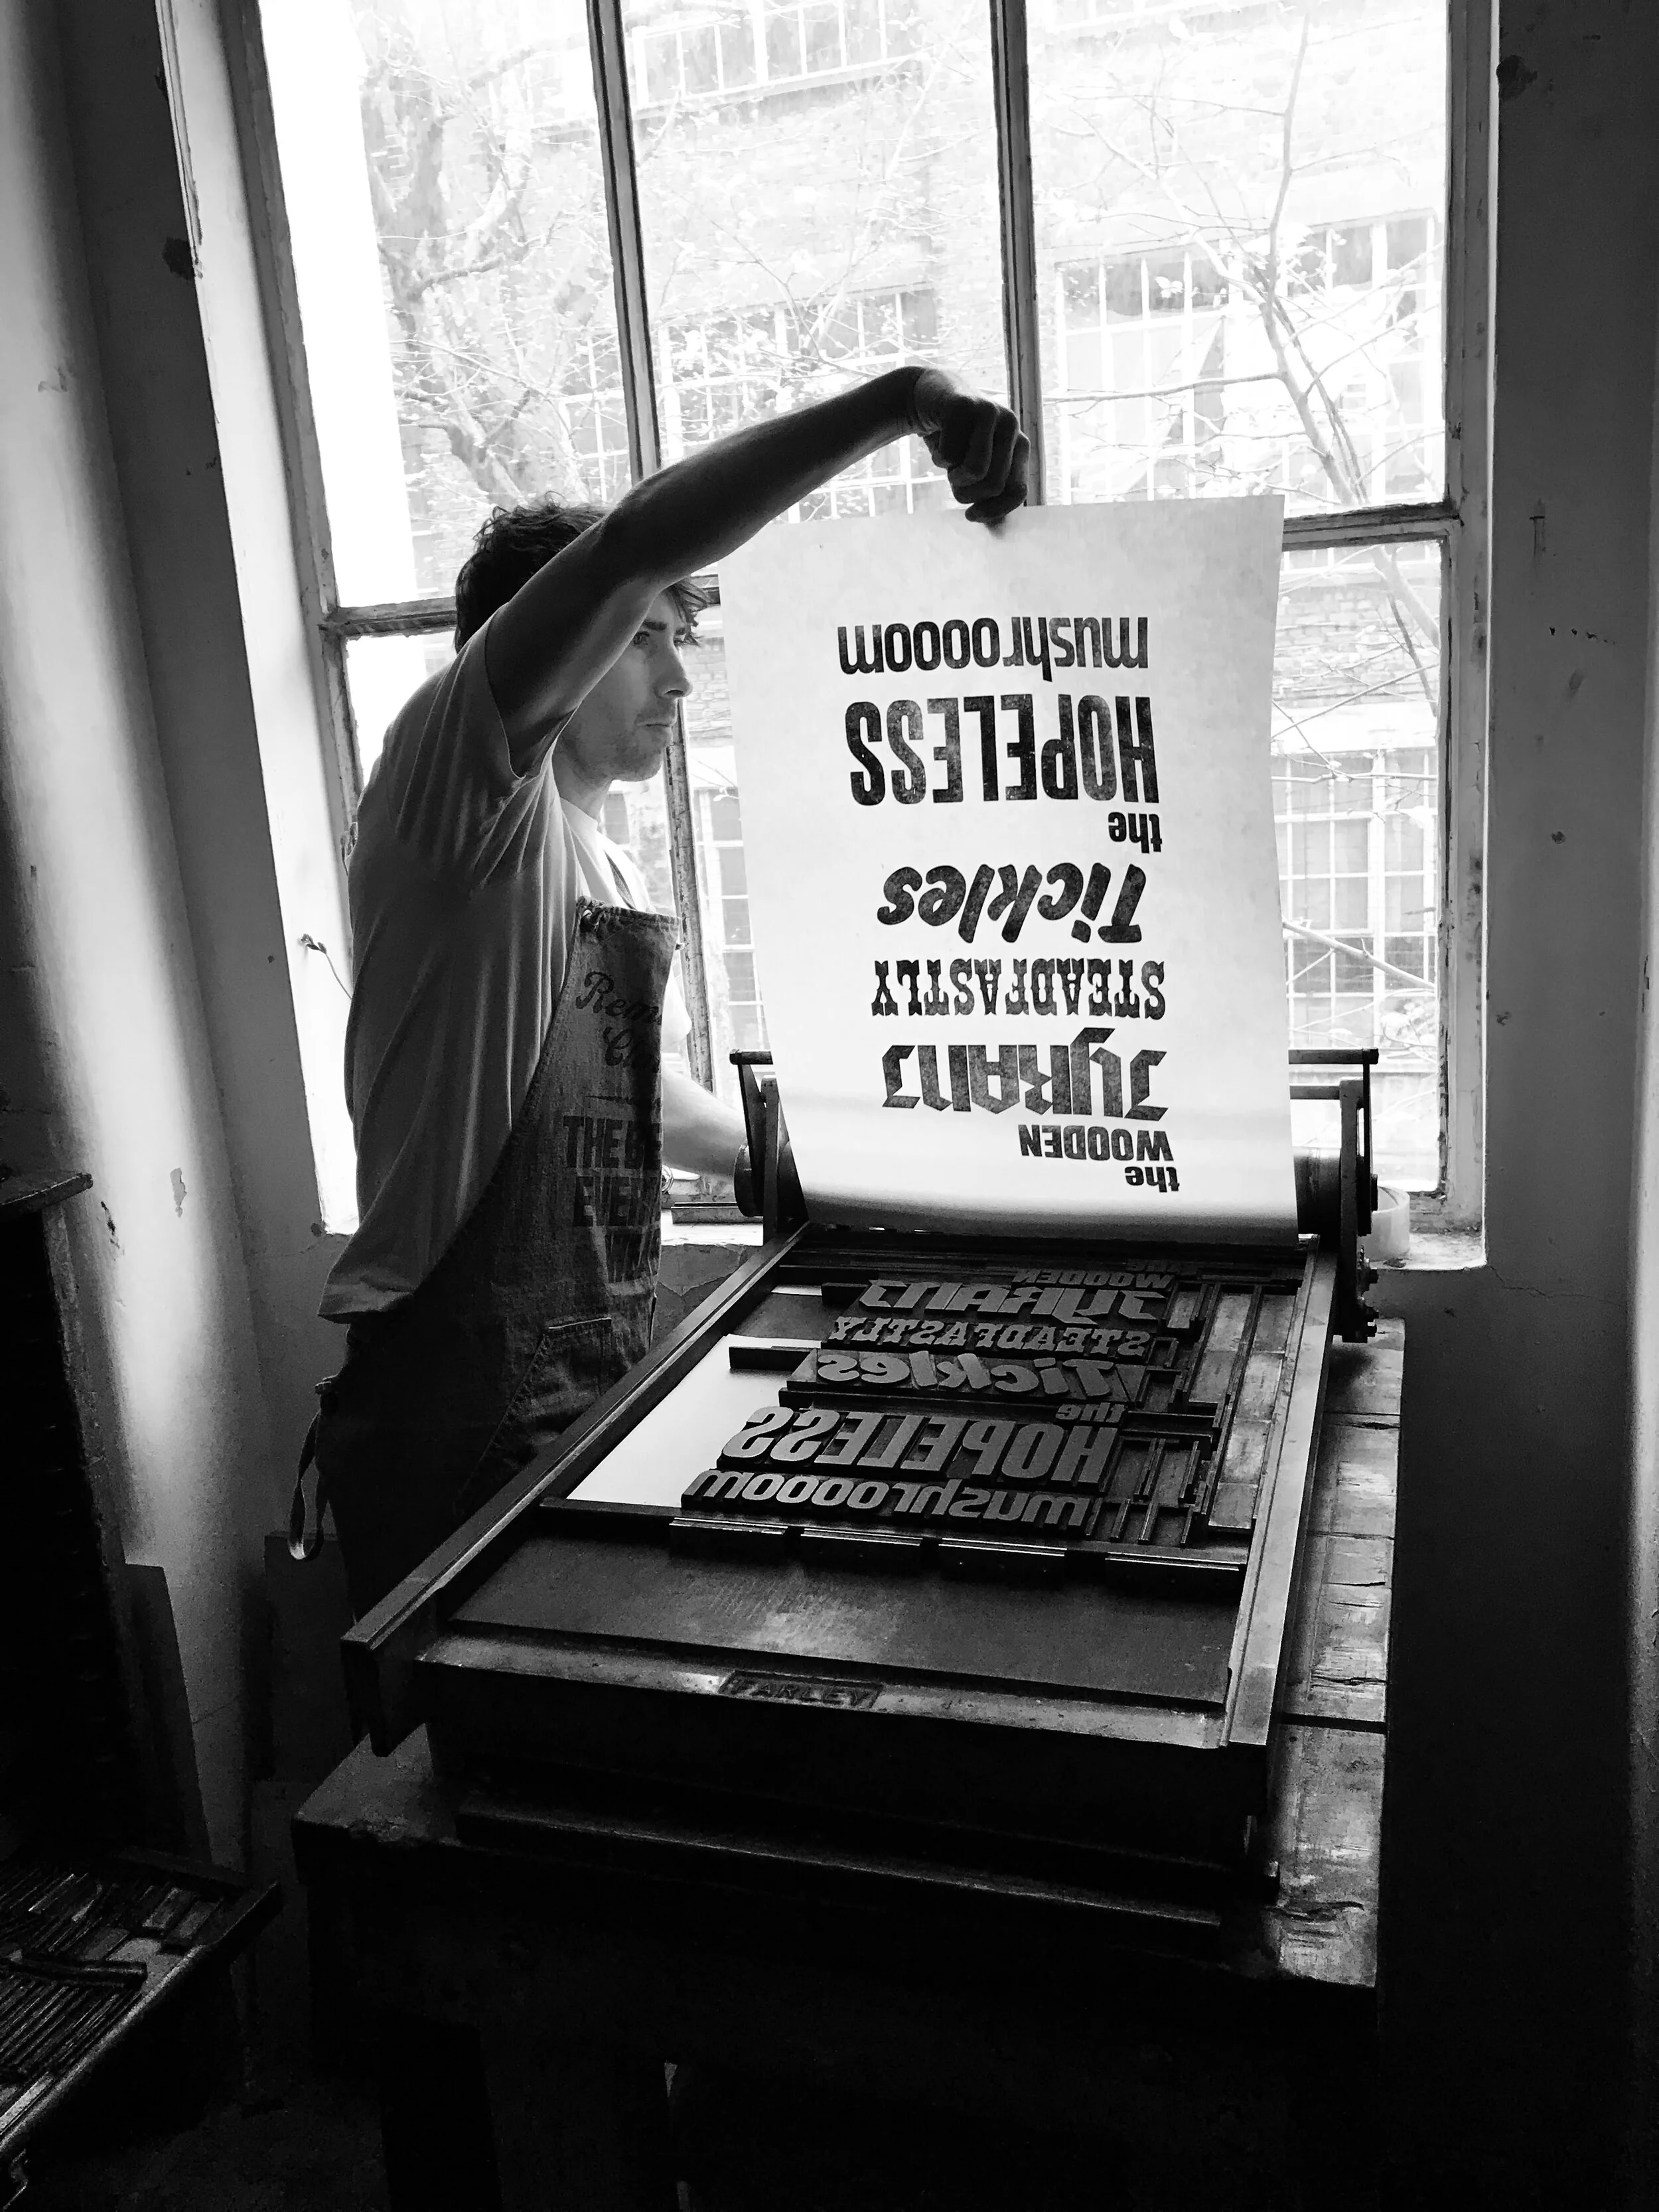 the
WOODEN
TYRANT
STEADFASTLY
Tickles
the
HOPELESS
mushroooom
THE
the
WOODEN
TYRANT
STEADFASTLY
Tickles
the
HOPELESS
mushroooom
FARLEY